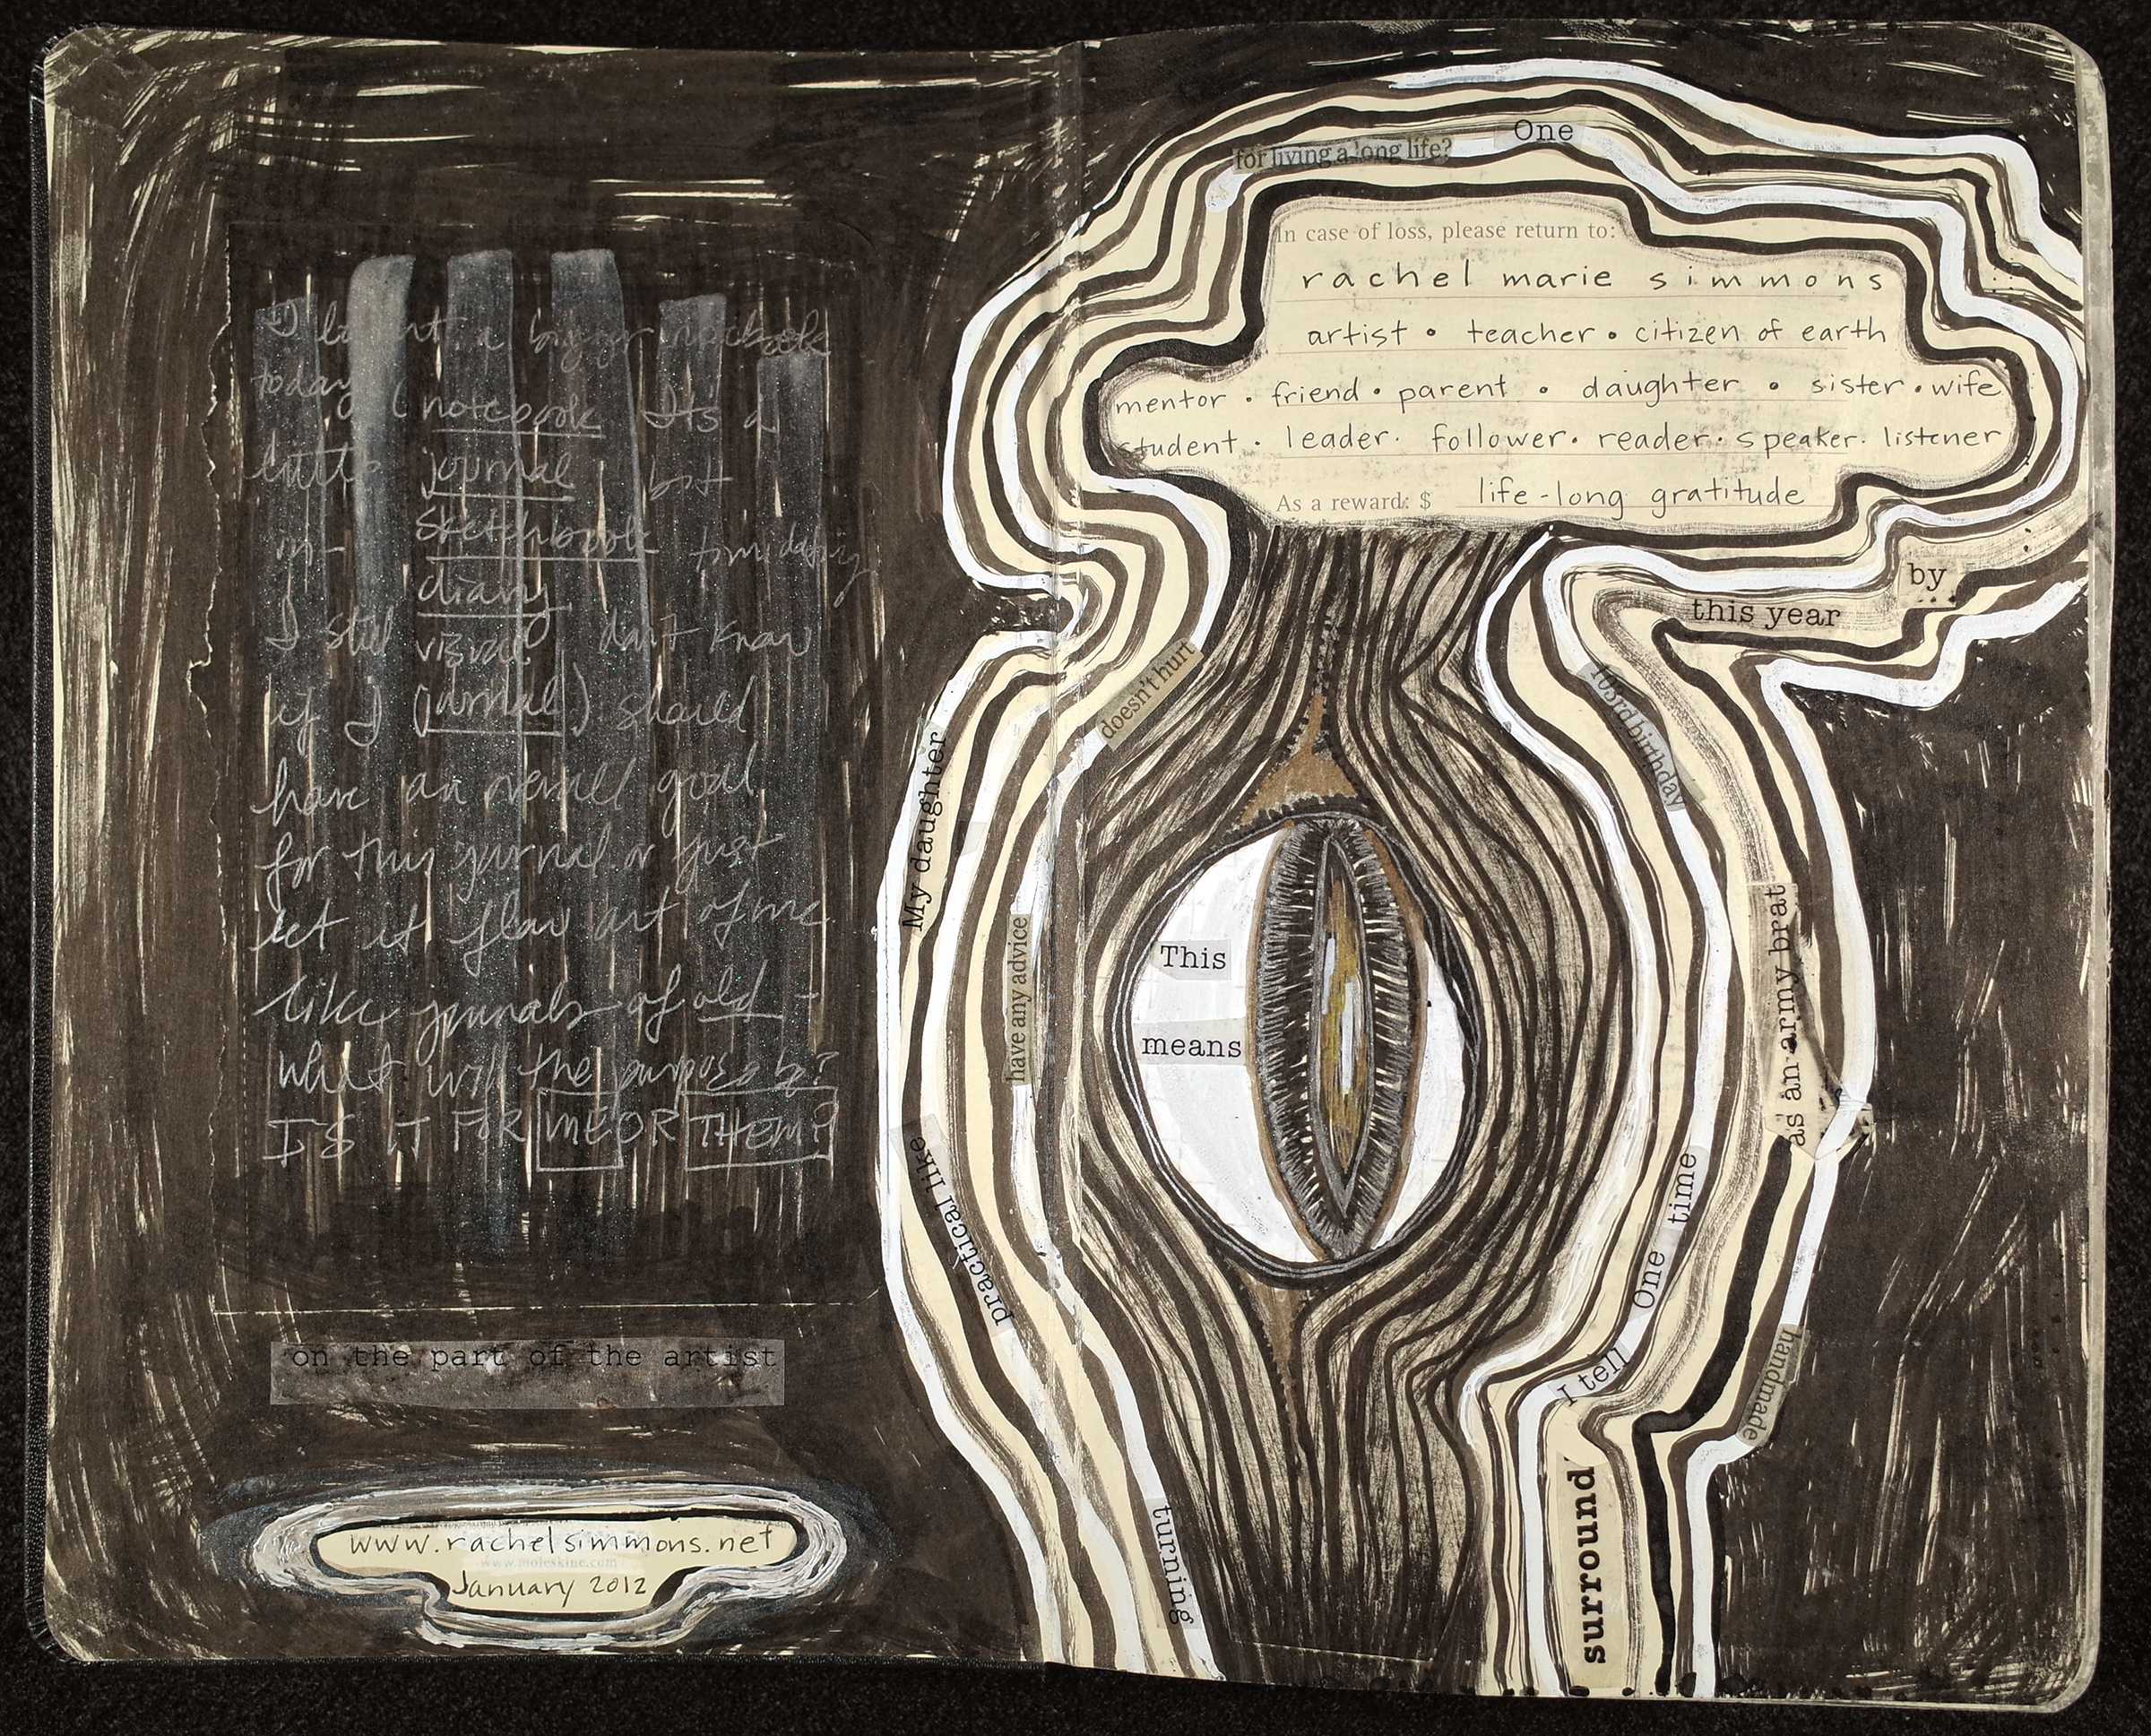 I bought a bigger notebook
today (notebook Its a
little journal bit
in- sketchbook timidating
diary
I still visual? don't know
if I (journal) should
have an overall goal
for this journal or just
let it flow out of me
like journals of old -
what will the purpose be?
IS IT FOR ME OR THEM?
on the part of the artist
www.rachelsimmons.net
www.moleskine.com
January 2012
for living a long life?
One
In case of loss, please return to:
rachel marie simmons
artist • teacher • citizen of earth
mentor • friend • parent • daughter • sister • wife
student • leader • follower • reader • speaker • listener
As a reward: $ life-long gratitude
by
this year
doesn't hurt
103rd birthday
My daughter
have any advice
This
means
as an army brat
practical like
One time
I tell
handmade
surround
turning